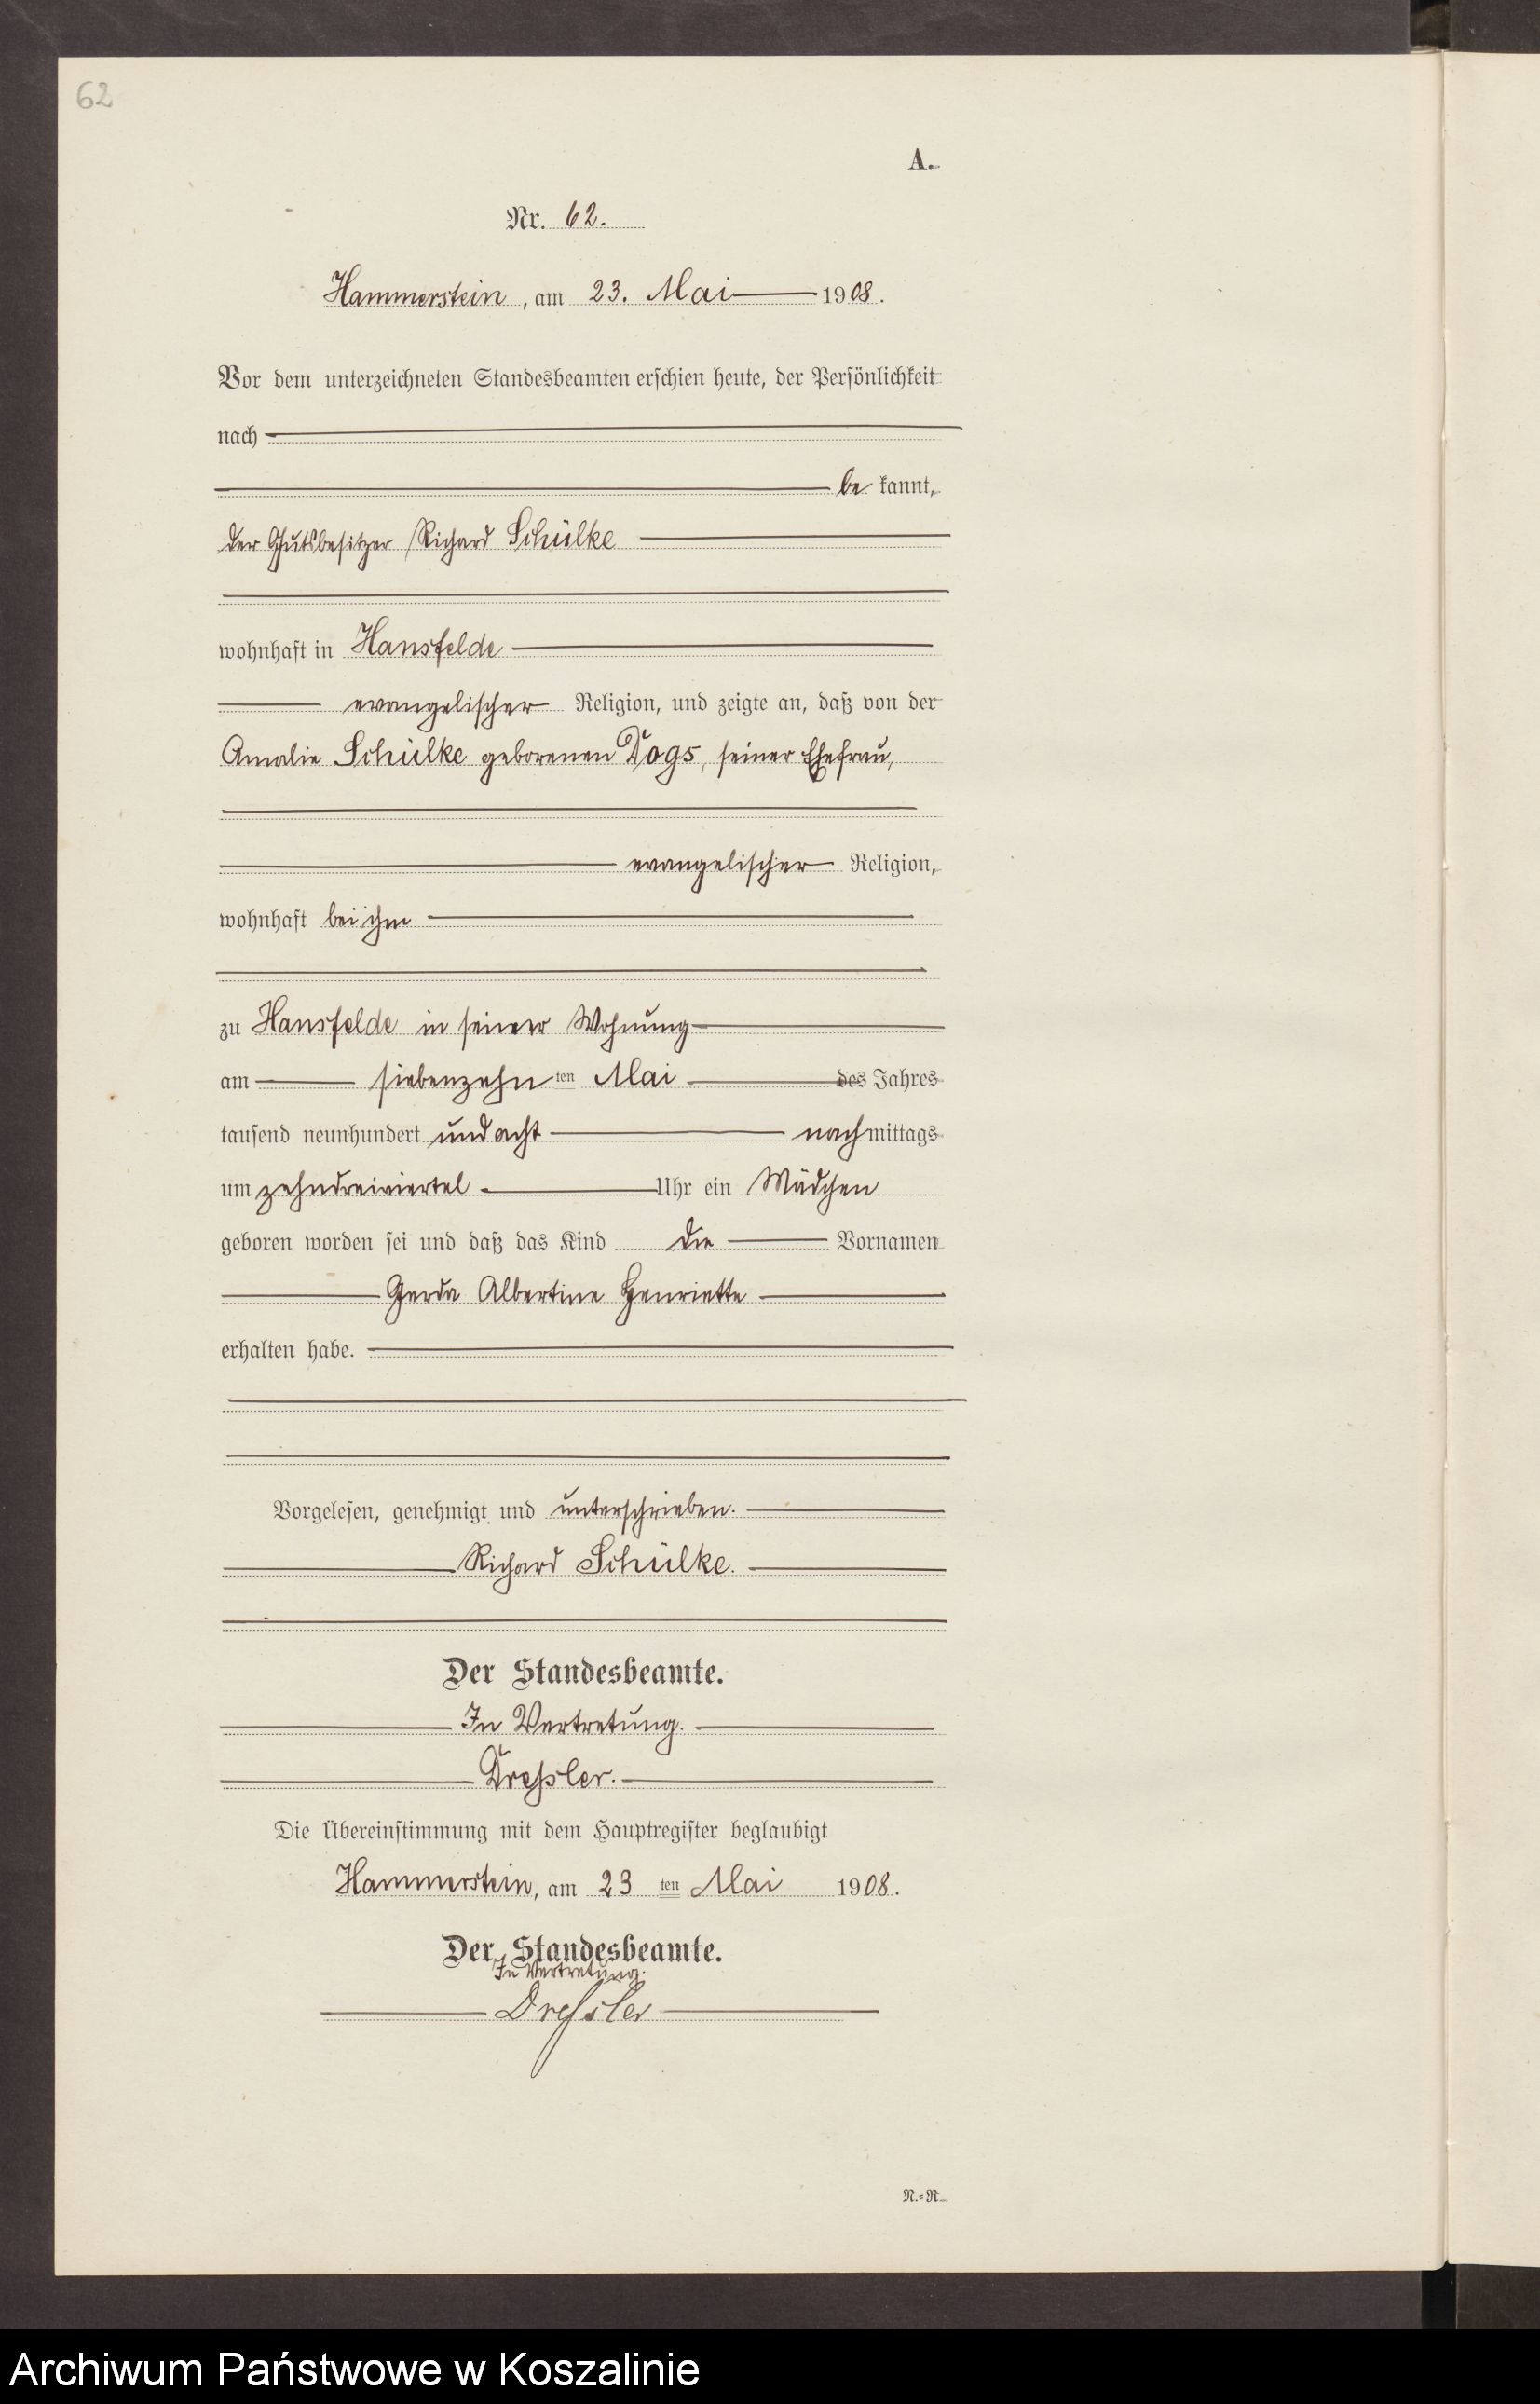 62
A.
Nr. 62.
Hammerstein, am 23. Mai 1908.
Vor dem unterzeichneten Standesbeamten erschien heute, der Persönlichkeit
nach
be kannt,
der Gutsbesitzer Richard Schülke
wohnhaft in Hansfelde
evangelischer Religion, und zeigte an, daß von der
Amalie Schülke geborenen Dogs, seiner Ehefrau,
evangelischer Religion,
wohnhaft bei ihm
zu Hansfelde in seiner Wohnung
am siebenzehn ten Mai des Jahres
tausend neunhundert und acht nachmittags
um zehndreiviertel Uhr ein Mädchen
geboren worden sei und daß das Kind die Vornamen
Gerda Albertine Henriette
erhalten habe.
Vorgelesen, genehmigt und unterschrieben.
Richard Schülke.
Der Standesbeamte.
In Vertretung.
Dreßler.
Die Übereinstimmung mit dem Hauptregister beglaubigt
Hammerstein, am 23 ten Mai 1908.
Der Standesbeamte.
In Vertretung.
Dreßler
N.=R.
Archiwum Państwowe w Koszalinie